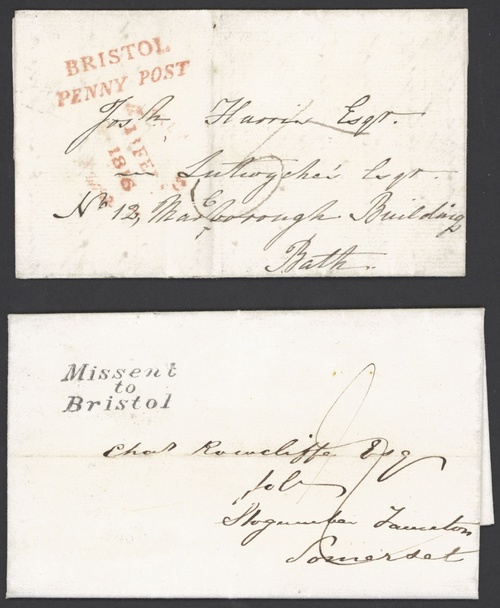 BRISTOL
PENNY POST
FE
1816
Josh. Harris Esqr.
Lutwyche's Esqr.
No 12, Marlborough Buildings
Bath.
Missent
to
Bristol
Chas Rowcliffe Esq
Stogumber Taunton
Somerset